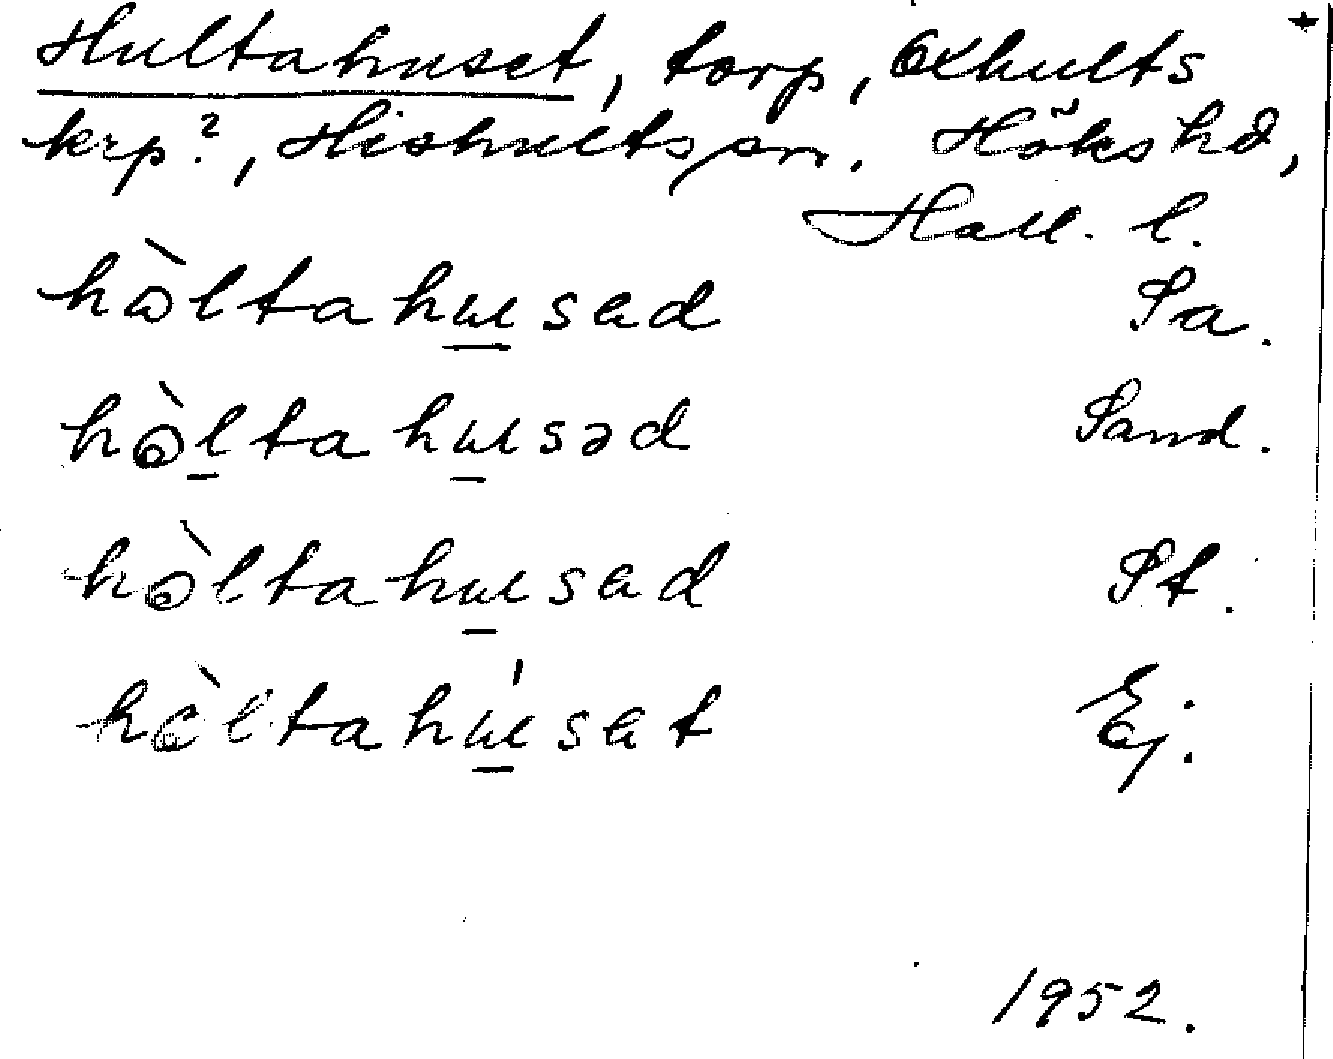 Hultahuset, torp, Oxhults +
krp?, Hishults sn. Höks hd,
Hall. l.
hòltahusad Sa.
hòltahusəd Sand.
hòltahusad St.
hòltahúsat Ej.
1952.